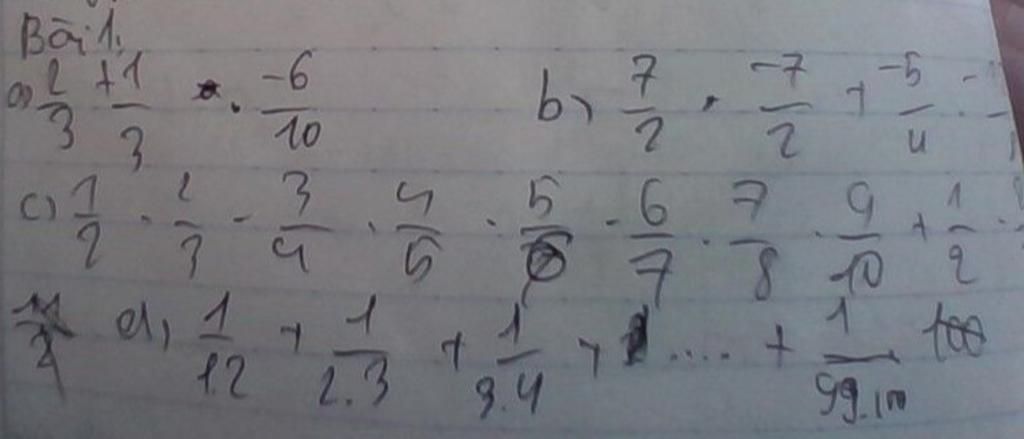 Bài 1.
a) 2/3 + 1/3 . -6/10 b) 7/2 . -7/2 + -5/4 .
c) 1/2 . 2/3 . 3/4 . 4/5 . 5/6 . 6/7 . 7/8 . 9/10 + 1/2 .
d) 1/1.2 + 1/2.3 + 1/3.4 + .... + 1/99.100